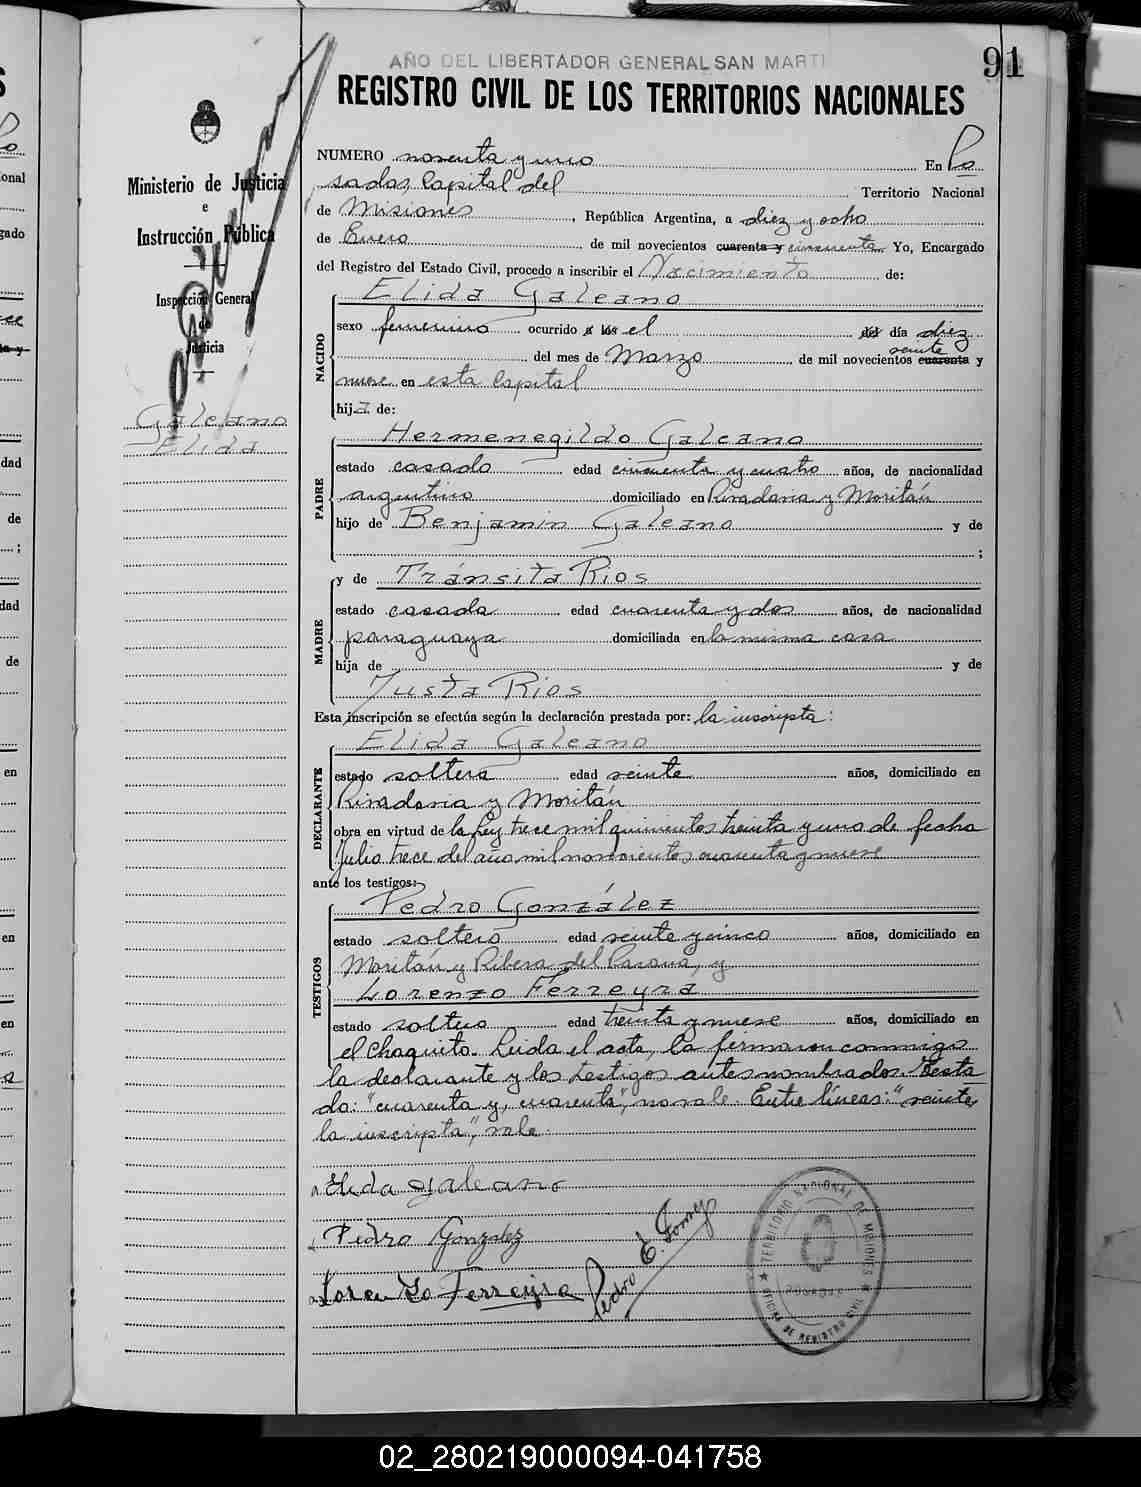 AÑO DEL LIBERTADOR GENERAL SAN MARTI
91
REGISTRO CIVIL DE LOS TERRITORIOS NACIONALES
Ministerio de Justicia
e
Instrucción Pública
Inspección General
de
Justicia
Galeano
Elida
NUMERO noventa y uno En Po
sadas, Capital del Territorio Nacional
de Misiones, República Argentina, a diez y ocho
de Enero de mil novecientos cuarenta y cincuenta Yo, Encargado
del Registro del Estado Civil, procedo a inscribir el Nacimiento de:
Elida Galeano
NACIDO
sexo femenino ocurrido a las el del día diez
del mes de Marzo de mil novecientos cuarenta y
veinte
nueve en esta Capital
hija de:
Hermenegildo Galeano
PADRE
estado casado edad cincuenta y cuatro años, de nacionalidad
argentino domiciliado en Rivadavia y Moritán
hijo de Benjamin Galeano y de
;
y de Tránsita Rios
MADRE
estado casada edad cuarenta y dos años, de nacionalidad
paraguaya domiciliada en la misma casa
hija de y de
Justa Rios
Esta inscripción se efectúa según la declaración prestada por: la inscripta:
Elida Galeano
DECLARANTE
estado soltera edad veinte años, domiciliado en
Rivadavia y Moritán
obra en virtud de la Ley trece mil quinientos treinta y uno de fecha
Julio trece del año mil novecientos cuarenta y nueve
ante los testigos:
Pedro González
TESTIGOS
estado soltero edad veinte y cinco años, domiciliado en
Moritán y Ribera del Paraná, y
Lorenzo Ferreyra
estado soltero edad treinta y nueve años, domiciliado en
el Chaquito. Leida el acta, la firmaron conmigo
la declarante y los testigos antes nombrados. Testa
do: "cuarenta y, cuarenta", no vale. Entre líneas: "veinte,
la inscripta", vale.
Elida Galeano
Pedro Gonzalez
Lorenzo Ferreyra
Pedro E.
TERRITORIO NACIONAL DE MISIONES
POSADAS
OFICINA DE REGISTRO CIVIL
02_280219000094-041758